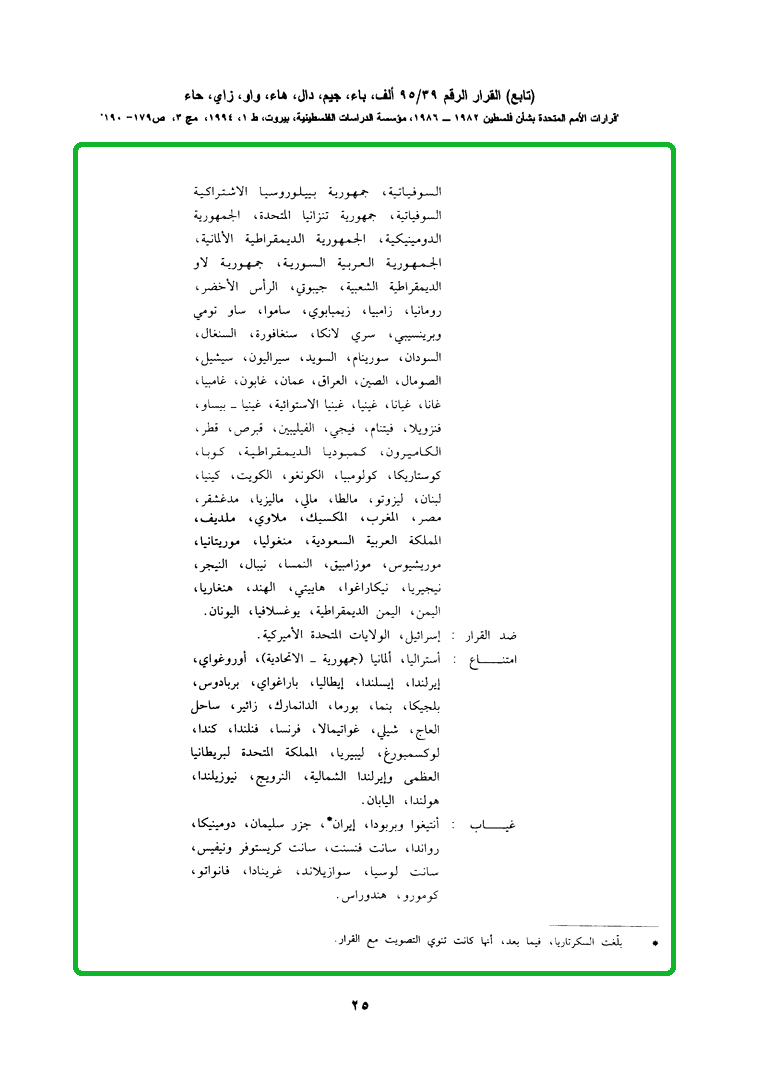 (تابع) القرار الرقم ٩٥/٣٩ ألف، باء، جيم، دال، هاء، واو، زاي، حاء
"قرارات الأمم المتحدة بشأن فلسطين ١٩٨٢ ــ ١٩٨٦، مؤسسة الدراسات الفلسطينية، بيروت، ط ١، ١٩٩٤، مج ٣، ص١٧٩- ١٩٠"
السوفياتية، جمهورية بييلوروسيا الاشتراكية
السوفياتية، جمهورية تنزانيا المتحدة، الجمهورية
الدومينيكية، الجمهورية الديمقراطية الألمانية،
الجمهورية العربية السورية، جمهورية لاو
الديمقراطية الشعبية، جيبوتي، الرأس الأخضر،
رومانيا، زامبيا، زيمبابوي، ساموا، ساو تومي
وبرينسيبي، سري لانكا، سنغافورة، السنغال،
السودان، سورينام، السويد، سيراليون، سيشيل،
الصومال، الصين، العراق، عمان، غابون، غامبيا،
غانا، غيانا، غينيا، غينيا الاستوائية، غينيا ــ بيساو،
فنزويلا، فيتنام، فيجي، الفيليبين، قبرص، قطر،
الكاميرون، كمبوديا الديمقراطية، كوبا،
كوستاريكا، كولومبيا، الكونغو، الكويت، كينيا،
لبنان، ليزوتو، مالطا، مالي، ماليزيا، مدغشقر،
مصر، المغرب، المكسيك، ملاوي، ملديف،
المملكة العربية السعودية، منغوليا، موريتانيا،
موريشيوس، موزامبيق، النمسا، نيبال، النيجر،
نيجيريا، نيكاراغوا، هاييتي، الهند، هنغاريا،
اليمن، اليمن الديمقراطية، يوغسلافيا، اليونان.
ضد القرار : إسرائيل، الولايات المتحدة الأميركية.
امتنـــــاع : أستراليا، ألمانيا (جمهورية ــ الاتحادية)، أوروغواي،
إيرلندا، إيسلندا، إيطاليا، باراغواي، بربادوس،
بلجيكا، بنما، بورما، الدانمارك، زائير، ساحل
العاج، شيلي، غواتيمالا، فرنسا، فنلندا، كندا،
لوكسمبورغ، ليبيريا، المملكة المتحدة لبريطانيا
العظمى وإيرلندا الشمالية، النرويج، نيوزيلندا،
هولندا، اليابان.
غيـــــاب : أنتيغوا وبربودا، إيران*، جزر سليمان، دومينيكا،
رواندا، سانت فنسنت، سانت كريستوفر ونيفيس،
سانت لوسيا، سوازيلاند، غرينادا، فانواتو،
كومورو، هندوراس.
* بلّغت السكرتاريا، فيما بعد، أنها كانت تنوي التصويت مع القرار.
٢٥